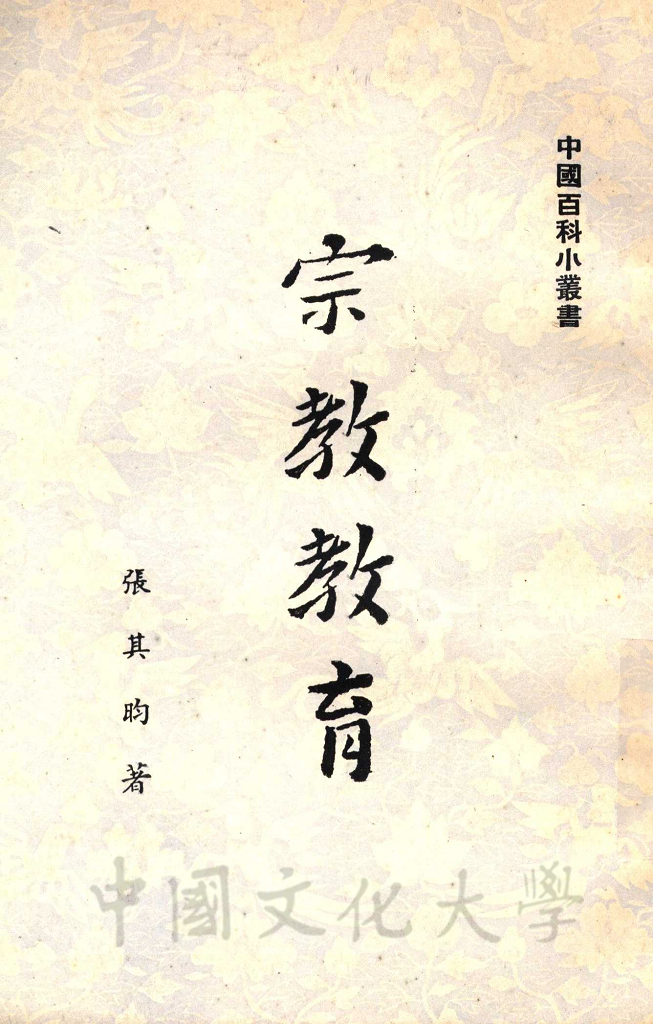 中國百科小叢書
宗教教育
張其昀著
中國文化大學